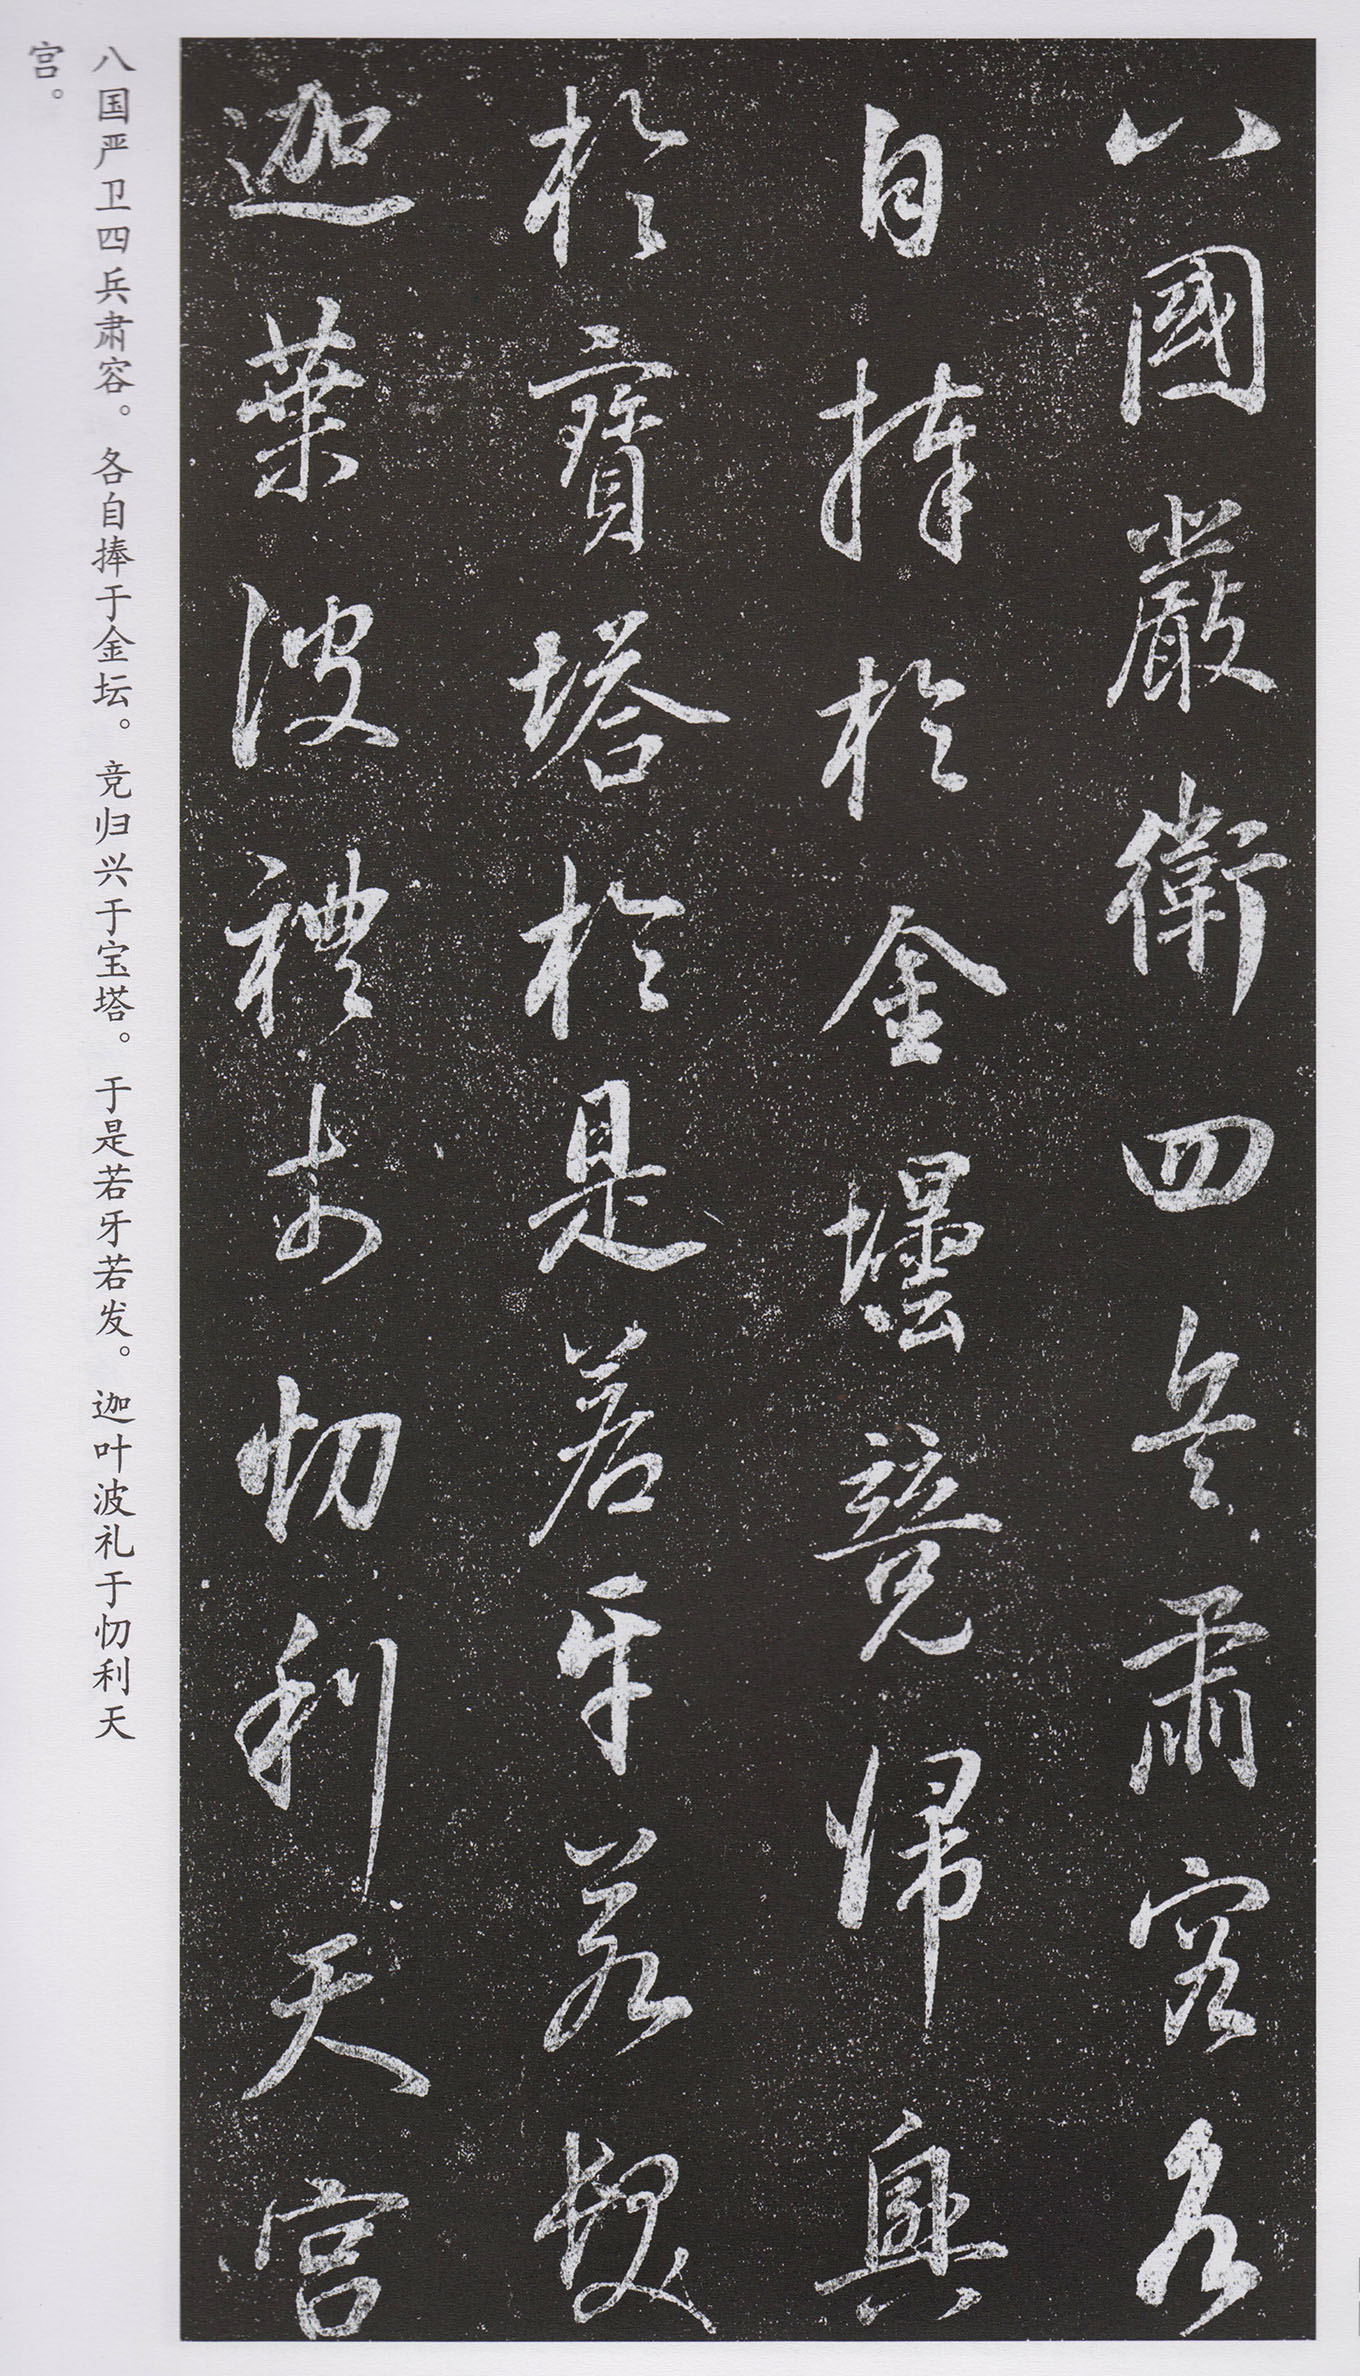 八國嚴衛四兵肅容各
自捧於金壇競歸興
於寶塔於是若牙若髮
迦葉波禮於忉利天宮
八国严卫四兵肃容。各自捧于金坛。竞归兴于宝塔。于是若牙若发。迦叶波礼于忉利天
宫。